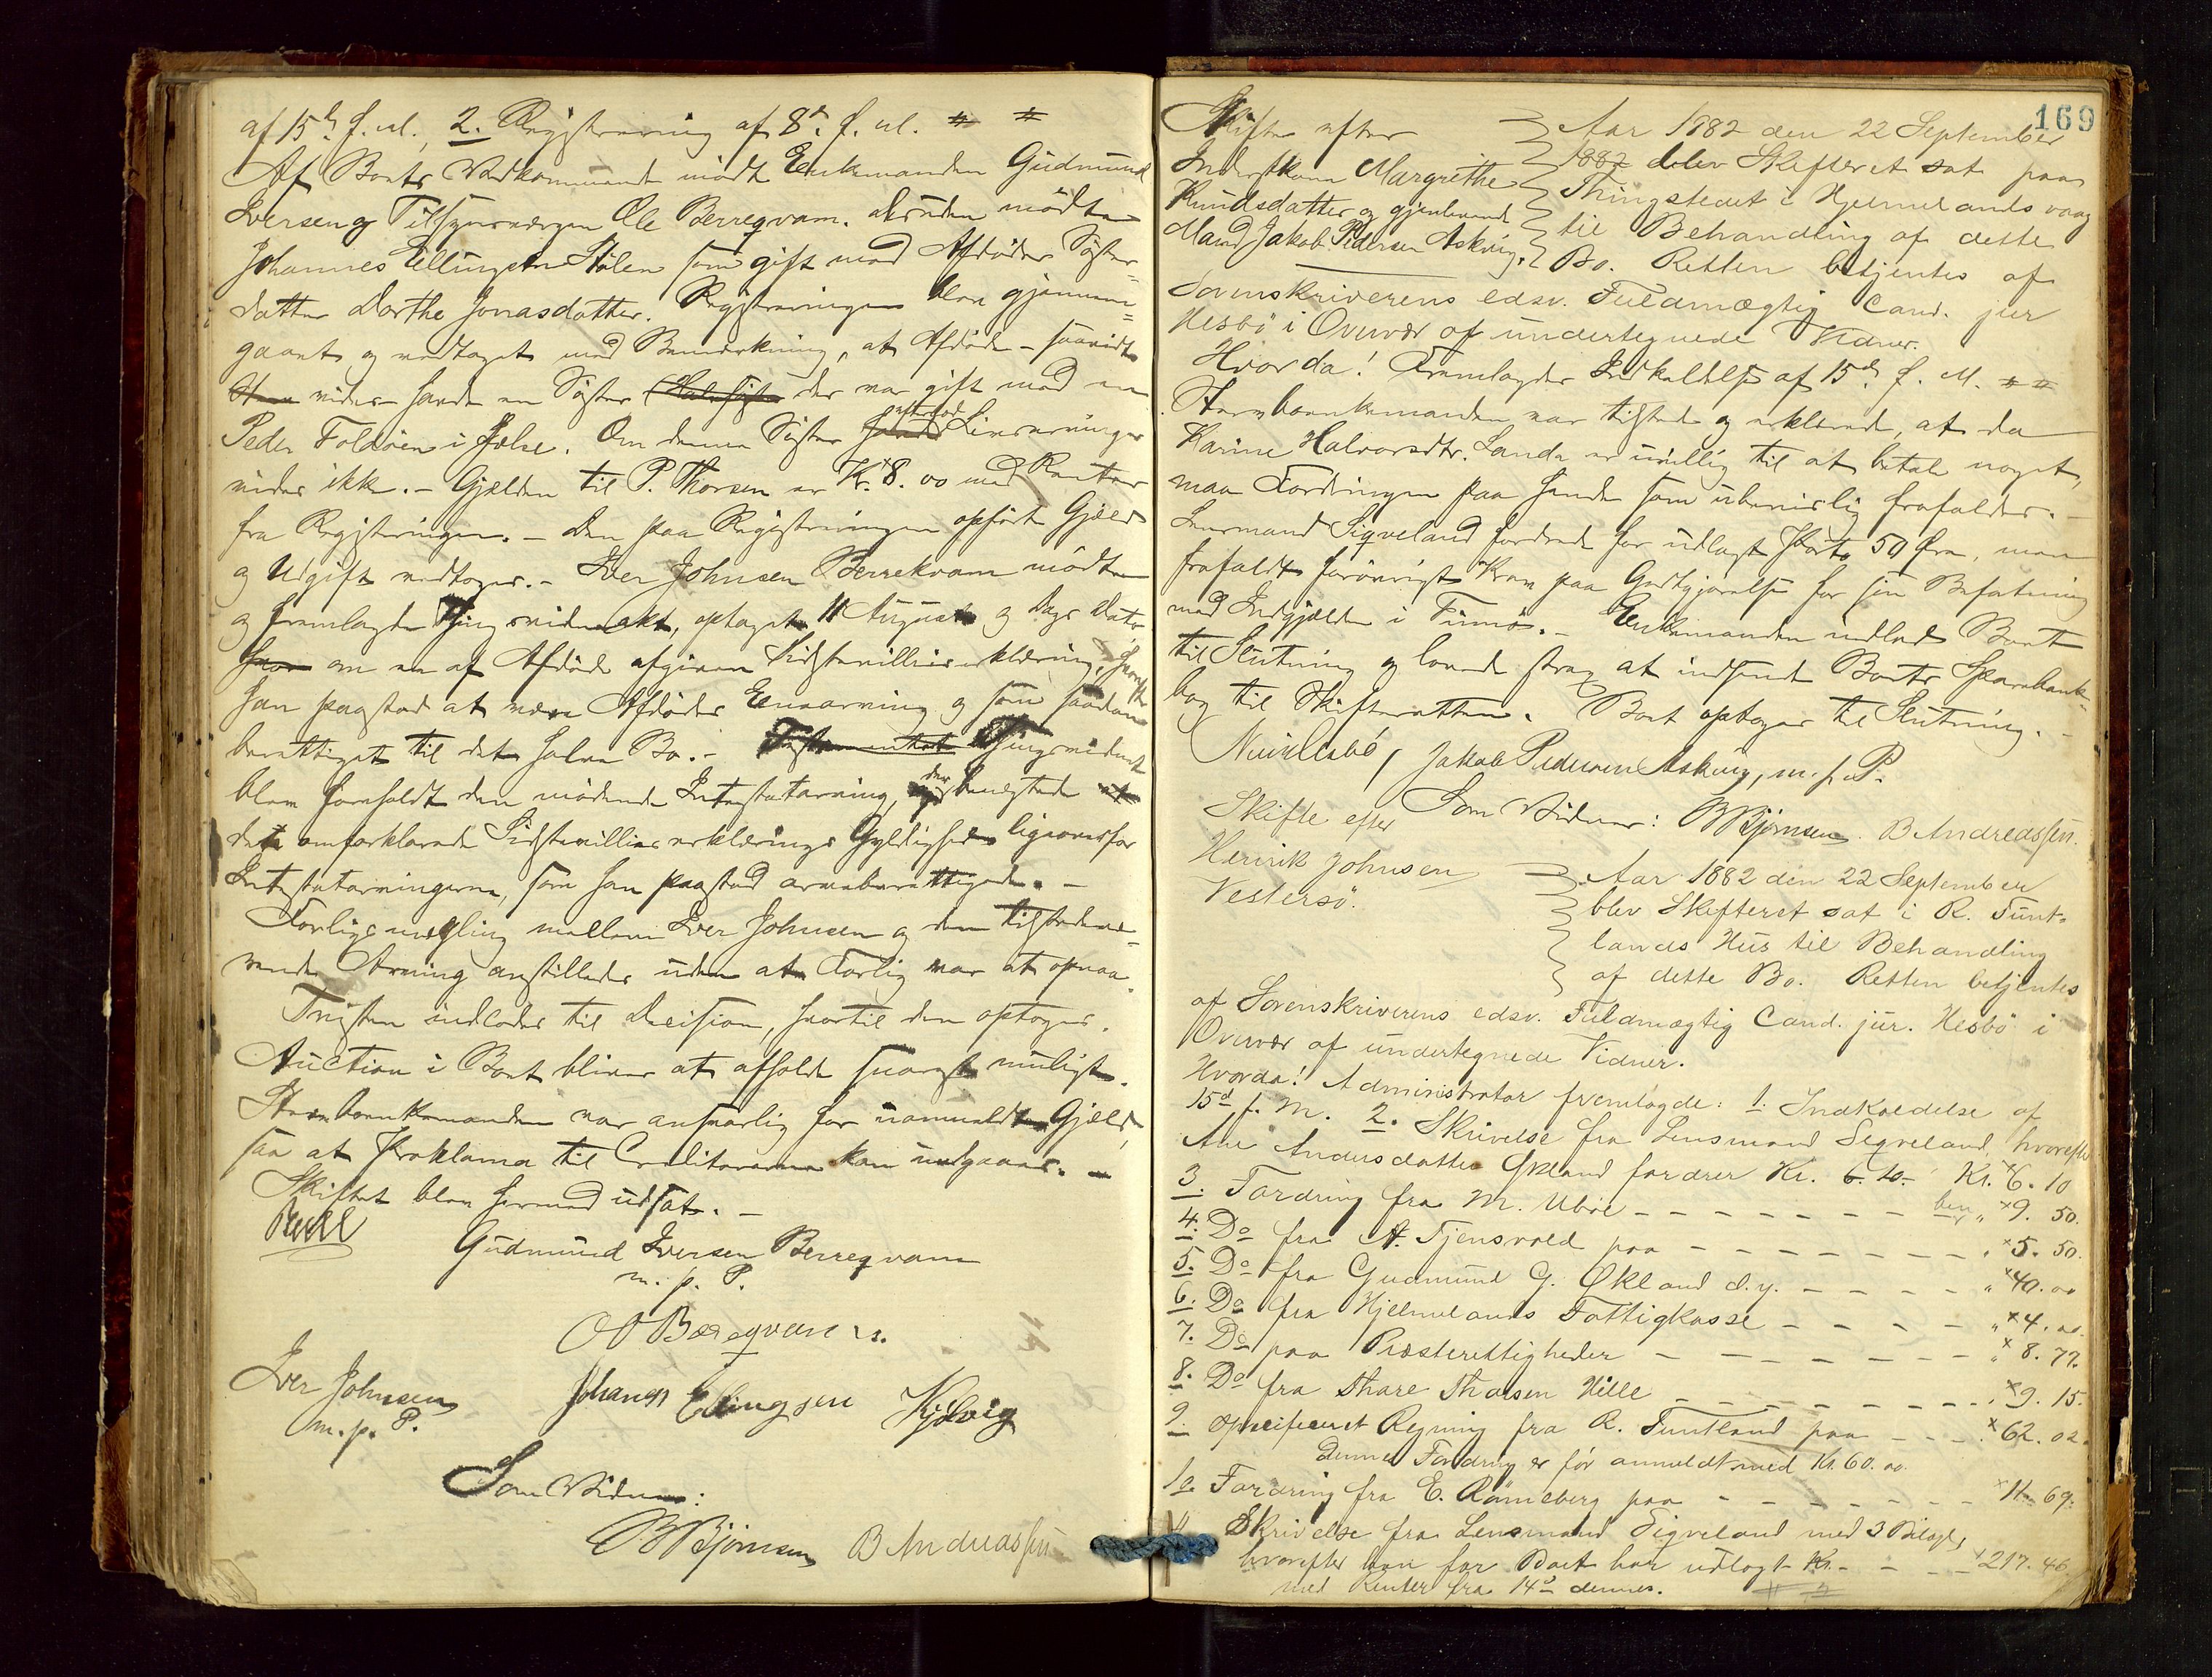 af 15de f. M., 2. Registrering af 8de f. M. # #
Af Boets Vedkommende mødte Enkemanden Gudmund
Iversen og Tilsynsværgen Ole Berreqvam. Desuden mødte
Johannes Ellingsen Stølen som gift med Afdødes Søster-
datter Dorthe Jonasdatter. Registreringen blev gjennem-
gaaet og vedtaget med Bemærkning, at Afdøde - saavidt
vides - havde en Søster der var gift med en
Peder Foldøen i Jelse. Om denne Søster efterlod Livsarvinger
vides ikke. - Gjælden til P. Thorsen er Kr. 8.00 med Renter
fra Registreringen. - Den paa Registreringen opførte Gjæld
og Udgift vedtoges. - Iver Johnsen Berrekvam mødte
og fremlagde Thingsvidneakt, optaget 11 August og Dags Dato
om en af Afdøde afgiven Sidstevilliserklæring, hvorefter
han paastod at være Afdødes Enearving og som saadan
berettiget til det halve Bo. - Thingsvidnet
blev foreholdt den mødende Intestatarving, der benegtede
den omforklarede Sidstevillieserklærings Gyldighed ligeoverfor
Intestatarvingerne, som han paastod arveberettigede. -
Forligsmægling mellem Iver Johnsen og den tilstedevæ-
rende Arving anstilledes uden at Forlig var at opnaa.
Tvisten indlodes til Decision, hvortil den optoges.
Auction i Boet bliver at afholde snarest muligt.
Stervboenkemanden var ansvarlig for uanmeldt Gjæld,
saa at Proklama til Creditorerne kan undgaaes. -
Skiftet blev hermed udsat. -
Gudmund Iversen Berreqvam
m. p. P.
O O Bæreqvam
Iver Johnsen
m. p. P.
Johanes Elingsen Kjølvig
Som Vidner:
B Bjørnsen B Andreassen
169
Skifte efter
Inderstkone Margrethe
Knudsdatter og gjenlevende
Mand Jakob Pedersen Askvig.
Aar 1882 den 22 September
1882 blev Skifteret sat paa
Thingstedet i Hjelmelandsvaag
til Behandling af dette
Bo. Retten betjentes af
Sorenskriverens edsv. Fuldmægtig Cand. jur
Hesbö i Overvær af undertegnede Vidner.
Hvorda! Fremlagdes Indkaldelse af 15de f. M. # #
Stervboenkemanden var tilstede og erklærede, at da
Karine Halvorsdtr. Lande er uvillig til at betale noget,
maa Fordringen paa hende som ubevislig frafaldes. -
Lensmand Sigveland fordrede for udlagt Porto 50 Øre, men
frafaldt forøvrigt Krav paa Godtgjørelse for sin Befatning
med Indgjælden i Finnø. - Enkemanden indlod Boet
til Slutning og lovede strax at indsende Boets Sparebank-
bog til Skifteretten. Boet optoges til Slutning. -
Jakob Pedersen Askvig, m. p. P.
Som Vidner: B Bjørnsen. B Andreassen.
Skifte efter
Henrik Johnsen
Vestersö.
Aar 1882 den 22 September
blev Skifteret sat i R. Tunt-
lands Hus til Behandling
af dette Bo. Retten betjentes
af Sorenskriverens edsv. Fuldmægtig Cand. jur. Hesbö i
Overvær af undertegnede Vidner.
Hvorda! Administrator fremlagde: 1. Indkaldelse af
15d f. M. 2. Skrivelse fra Lensmand Sigveland, hvorefter
Ane Andersdatter Økland fordrer Kr. 6. 10. - Kr. 6. 10
3. Fordring fra M. Uböe - - - " 9. 50.
4. Do fra A. Tjensvold paa - - - " 5. 50.
5. Do fra Gudmund G. Økland d.y. - - - " 40. 00
6. Do fra Hjelmelands Fattigkasse - - - " 4. 00.
7. Do paa Præsterettigheder - - - " 8. 77.
8. Do fra Thore Thorsen Hille - - - " 9. 15.
9. specificeret Regning fra R. Tuntland paa - - - 62. 02.
Denne Fordring er før anmeldt med Kr. 60. 00.
10. Fordring fra E. Rönneberg paa - - - 11. 69.
11. Skrivelse fra Lensmand Sigveland med 3 Bilage,
hvorefter han for Boet har udlagt Kr. - - - 217. 46
med Renter fra 14d dennes. # #